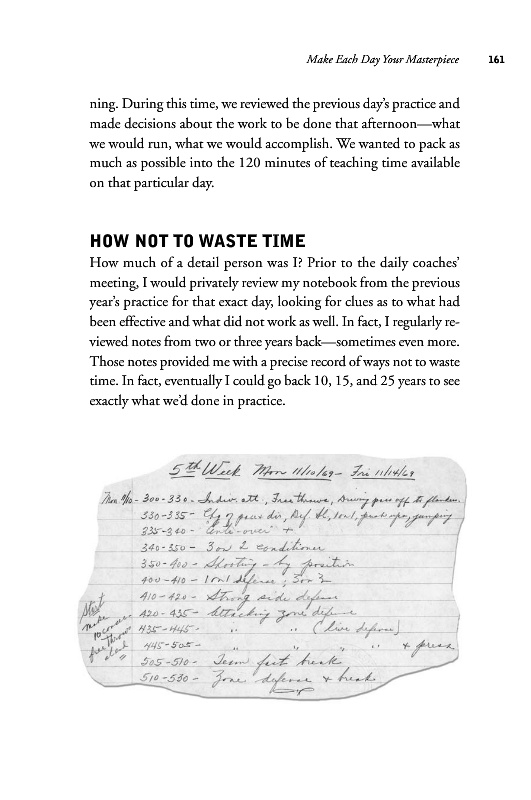 Make Each Day Your Masterpiece 161
ning. During this time, we reviewed the previous day's practice and
made decisions about the work to be done that afternoon—what
we would run, what we would accomplish. We wanted to pack as
much as possible into the 120 minutes of teaching time available
on that particular day.
HOW NOT TO WASTE TIME
How much of a detail person was I? Prior to the daily coaches'
meeting, I would privately review my notebook from the previous
year's practice for that exact day, looking for clues as to what had
been effective and what did not work as well. In fact, I regularly re-
viewed notes from two or three years back—sometimes even more.
Those notes provided me with a precise record of ways not to waste
time. In fact, eventually I could go back 10, 15, and 25 years to see
exactly what we'd done in practice.
5th Week Mon 11/10/69 – Fri 11/14/69
Mon 11/10 - 300-330 - Indiv. att., Free throws, Driving pass off to
330-335 - Chg of pace dir, Def sl, 1 on 1, jumping
335-340 -
340-350 - 3 on 2 conditioner
350-400 - Shooting - by position
400-410 - 1 on 1 defense; 3 on 2
410-420 - Strong side defense
Start
420-435 - Attacking zone defense
make
10 consec
435-445 - " " (live defense)
free throws
445-505 - " " " " & press
505-510 - Team fast break
510-530 - Zone defense & break